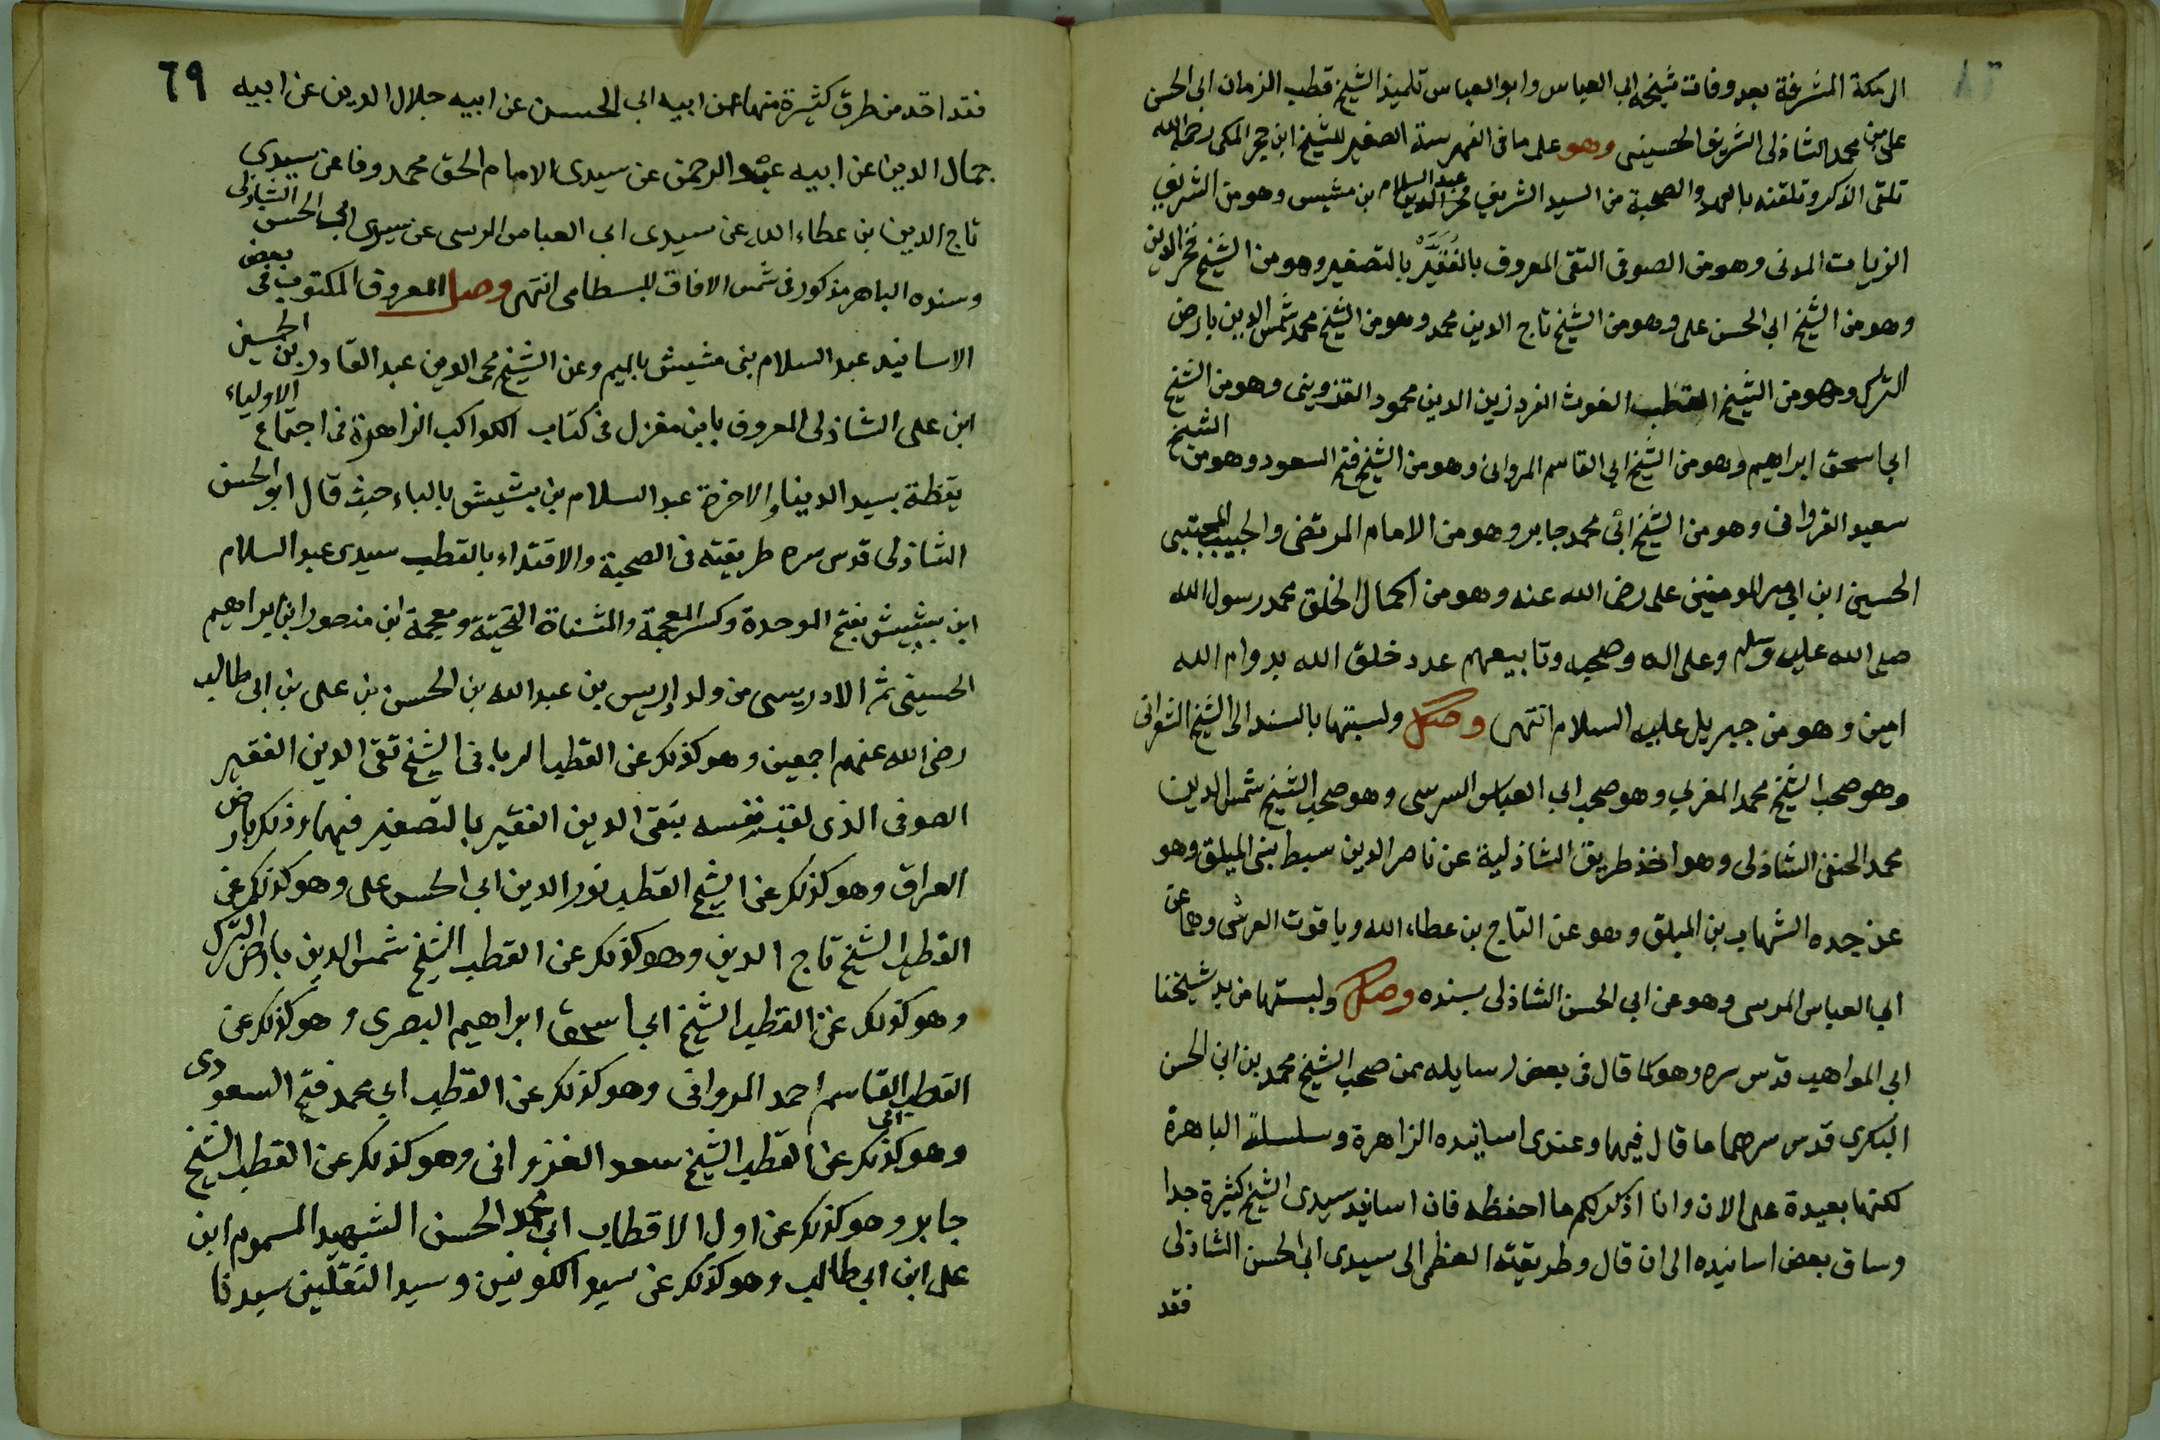 الى مكة المشرفة بعد وفات شيخه ابى العباس وابو العباس تلميذ الشيخ قطب الزمان ابى الحسن
على بن محمد الشاذلى الشريف الحسينى وهو على ما فى الفهرسة الصغير للشيخ ابن حجر المكى رحمه الله
تلقى الذكر وتلقنه بالعهد والصحبة من السيد الشريف فخر الدين عبد السلام بن مشيس وهو من الشريف
الزيات المدنى وهو من الصوفى التقى المعروف بالفُقَيِّرْ بالتصغير وهو من الشيخ فخر الدين
وهو من الشيخ ابى الحسن على وهو من الشيخ تاج الدين محمد وهو من الشيخ محمد شمس الدين بارض
الترك وهو من الشيخ القطب الغوث الفرد زين الدين محمود القزوينى وهو من الشيخ
ابى اسحق ابراهيم وهو من الشيخ ابى القاسم المروانى وهو من الشيخ فتح السعود وهو من الشيخ
سعيد الغزوانى وهو من الشيخ ابى محمد جابر وهو من الامام المرتضى والحبيب المجتبى
الحسين ابن امير المومنين على رضى الله عنه وهو من اكمال الخلق محمد رسول الله
صلى الله عليه وسلم وعلى اله وصحبه وتابيعهم عدد خلق الله بدوام الله
امين وهو من جبريل عليه السلام انتهى وصل ولبستها بالسند الى الشيخ الشعرانى
وهو صحب الشيخ محمد المغربى وهو صحب ابى العباس السرسى وهو صحب الشيخ شمس الدين
محمد الحنفى الشاذلى وهو اخذ طريق الشاذلية عن ناصر الدين سبط بنى الميلق وهو
عن جده الشهاب بن الميلق وهو عن التاج بن عطاء الله وياقوت العرشى وهما عن
ابى العباس المرسى وهو عن ابى الحسن الشاذلى بسنده وصل ولبستها من يد شيخنا
ابى المواهب قدس سره وهو كما قال فى بعض رسايله ممن صحب الشيخ محمد بن ابى الحسن
البكرى قدس سرهما ما قال فيها وعندى اسانيده الزاهرة وسلسلة الباهرة
لكنها بعيدة على الان وانا اذكر لكم ما احفظه فان اسانيد سيدى الشيخ كثيرة جدا
وساق بعض اسانيده الى ان قال وطريقته العظمى الى سيدى ابى الحسن الشاذلى
فقد
٦٩
فقد اخذ من طرق كثيرة منها عن ابيه ابى الحسن عن ابيه جلال الدين عن ابيه
جمال الدين عن ابيه عبد الرحمن عن سيدى الامام الحق محمد وفا عن سيدى
تاج الدين بن عطاء الله عن سيدى ابى العباس المرسى عن سيدى ابى الحسن الشاذلى
وسنده الباهر مذكور فى شمس الافاق للبسطامى انتهى وصل المعروف المكتوب فى بعض
الاسانيد عبد السلام بنى مشيش بالميم وعن الشيخ محى الدين عبد القادر بن الحسين
ابن على الشاذلى المعروف بابن مغزل فى كتاب الكواكب الزاهرة فى اجتماع الاولياء
يقظة بسيد الدينا والاخرة عبد السلام بن بشيش بالباء حيث قال ابو الحسن
الشاذلى قدس سره طريقته فى الصحبة والاقتداء بالقطب سيدى عبد السلام
ابن بشيش بفتح الموحدة وكسر المعجمة والمثناة التحتية ومعجمة ابن منصور ابن ابراهيم
الحسينى ثم الادريسى من ولد ادريس بن عبد الله بن الحسن بن على بن ابى طالب
رضى الله عنهم اجمعين وهو كذلك عن القطب الربانى الشيخ تقى الدين الفقير
الصوفى الذى لقب نفسه بتقى الدين الفقير بالتصغير فيهما وذلك بارض
العراق وهو كذلك عن الشيخ القطب نور الدين ابى الحسن على وهو كذلك عن
القطب الشيخ تاج الدين وهو كذلك عن القطب الشيخ شمس الدين بارض الترك
وهو كذلك عن القطب الشيخ ابى اسحق ابراهيم البصرى وهو كذلك عن
القطب ابى القاسم احمد المروانى وهو كذلك عن القطب ابى محمد فتح السعودى
وهو كذلك عن القطب الشيخ سعد الغزوانى وهو كذلك عن القطب الشيخ
جابر وهو كذلك عن اول الاقطاب ابى محمد الحسن الشهيد المسموم ابن
على ابن ابى طالب وهو كذلك عن سيد الكونين وسيد الثقلين سيدنا